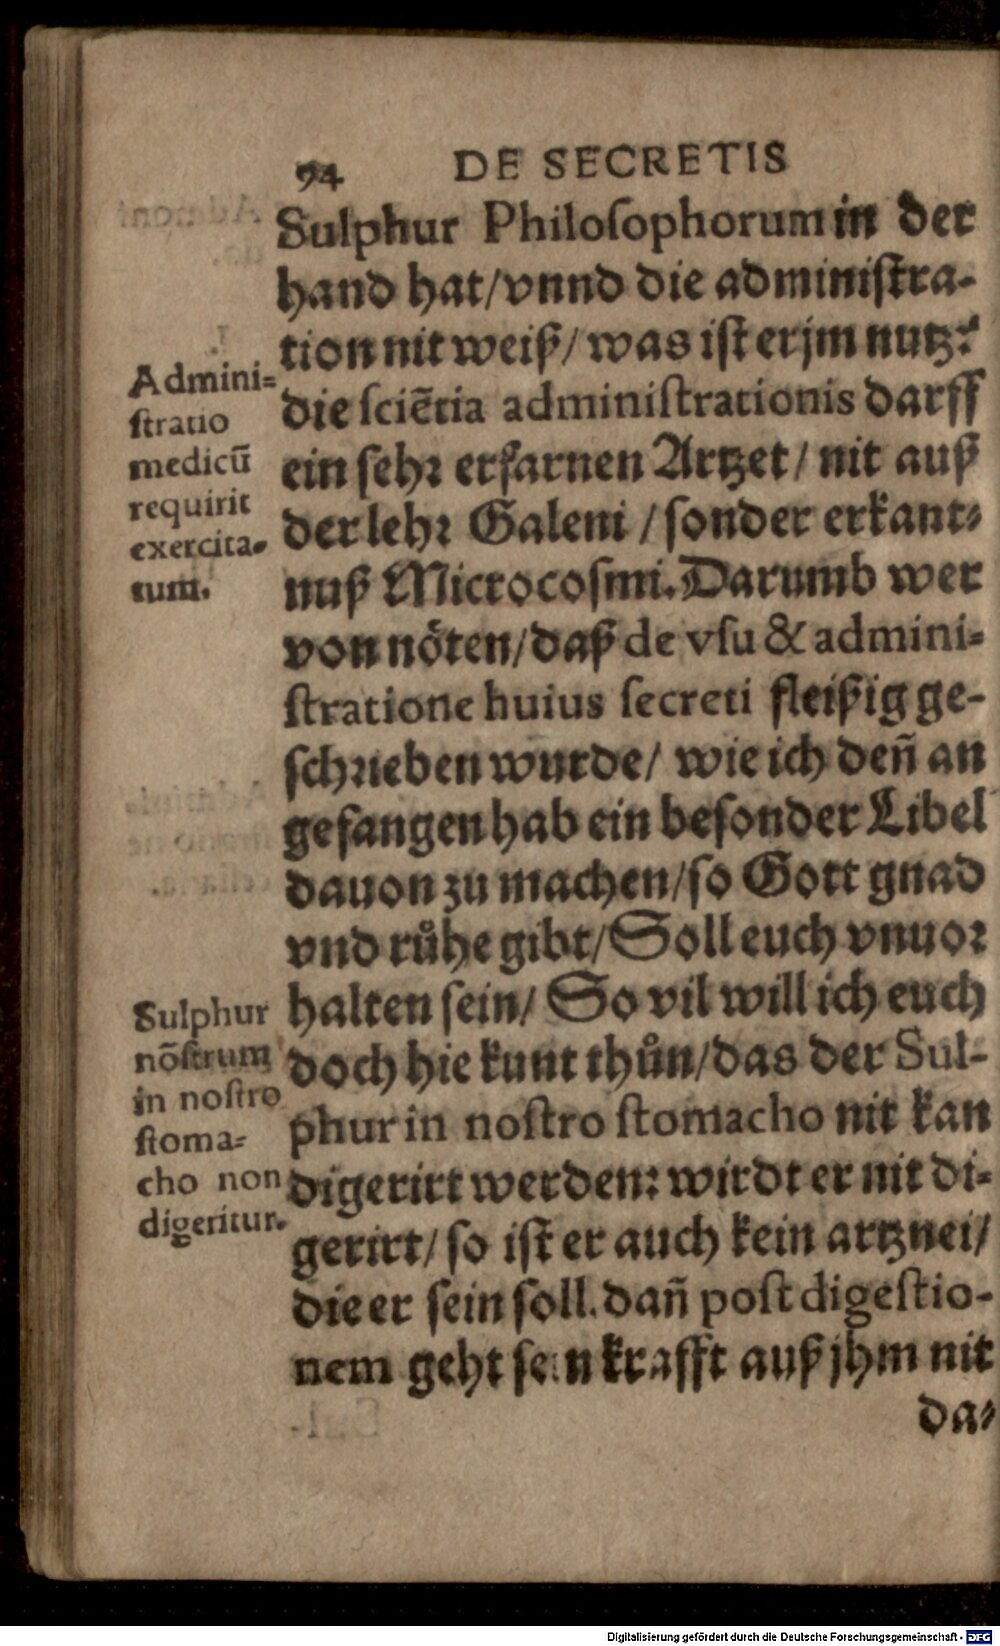 94 DE SECRETIS
Sulphur Philosophorum in der
hand hat/vnnd die administra-
tion nit weiß/ was ist er jm nutz?
die sciẽtia administrationis darff
ein sehr erfarnen Artzet/ nit auß
der lehr Galeni / sonder erkant-
nuß Microcosmi. Darumb wer
von nöten/daß de vsu & admini-
stratione huius secreti fleißig ge-
schrieben wurde/ wie ich deñ an
gefangen hab ein besonder Libel
dauon zu machen/so Gott gnad
vnd růhe gibt/ Soll euch vnuor
halten sein/ So vil will ich euch
doch hie kunt thůn/das der Sul-
phur in nostro stomacho nit kan
digerirt werden: wirdt er nit di-
gerirt/ so ist er auch kein artznei/
die er sein soll. dañ post digestio-
nem geht sein krafft auß jhm nit
da-
Admini-
stratio
medicũ
requirit
exercita-
tum.
Sulphur
nõstrum
in nostro
stoma-
cho non
digeritur.
Digitalisierung gefördert durch die Deutsche Forschungsgemeinschaft - DFG